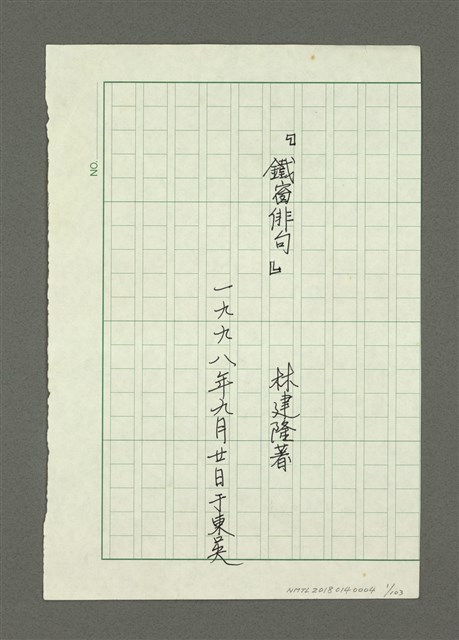 『鐵窗俳句』 林建隆著
一九九八年九月廿日于東吳
NO.
NMTL 2018 014 0004 1/103